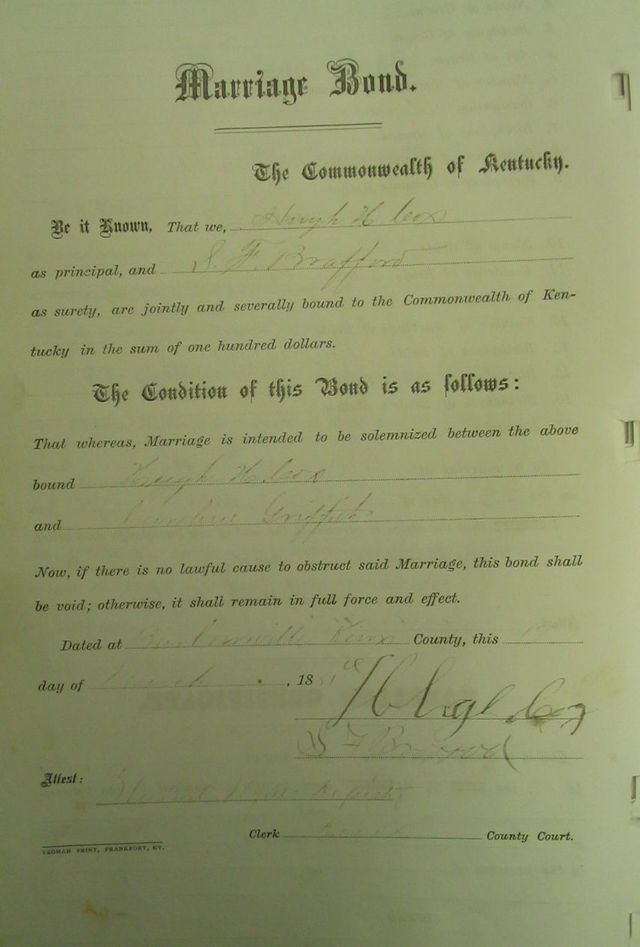 Marriage Bond.
The Commonwealth of Kentucky.
Be it Known, That we, Hugh H Cox
as principal, and S. F. Brafford
as surety, are jointly and severally bound to the Commonwealth of Ken-
tucky in the sum of one hundred dollars.
The Condition of this Bond is as follows:
That whereas, Marriage is intended to be solemnized between the above
bound Hugh H Cox
and Caroline Griffith
Now, if there is no lawful cause to obstruct said Marriage, this bond shall
be void; otherwise, it shall remain in full force and effect.
Dated at Barbourville Knox County, this
day of March, 18
Hugh Cox
S F Brafford
Attest:
Clerk County Court.
YEOMAN PRINT, FRANKFORT, KY.